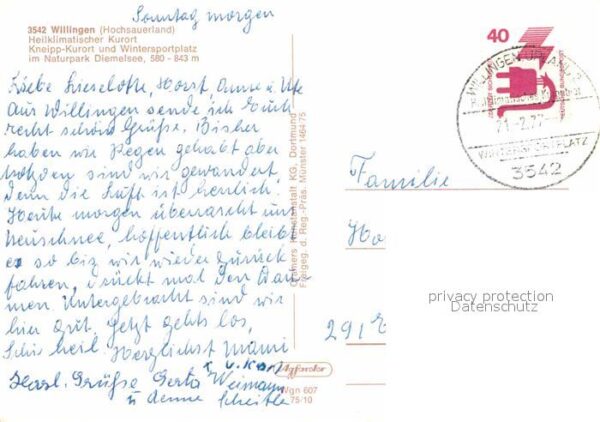 Sonntag morgen
3542 Willingen (Hochsauerland)
Heilklimatischer Kurort
Kneipp-Kurort und Wintersportplatz
im Naturpark Diemelsee, 580 - 843 m
Liebe Lieselotte, Horst, Anne u. Ute
Aus Willingen sende ich Euch
recht schöne Grüße. Bisher
haben wir Regen gehabt aber
trotzdem sind wir gewandert,
denn die Luft ist herrlich.
Heute morgen überrascht uns
Neuschnee, hoffentlich bleibt
er so bis wir wieder zurück
fahren, drückt mal den Dau-
men. Untergebracht sind wir
hier gut. Jetzt gehts los,
Schi heil. Herzlichst Mami
u. Karl
Herzl. Grüße Gerta Weimann
u
Cramers Kunstanstalt KG, Dortmund
Freigeg. d. Reg.-Präs. Münster 1464/75
Agfacolor
Wgn 607
75/10
40
WILLINGEN
21.-2.77
WINTERSPORTPLATZ
3542
Familie
291
privacy protection
Datenschutz